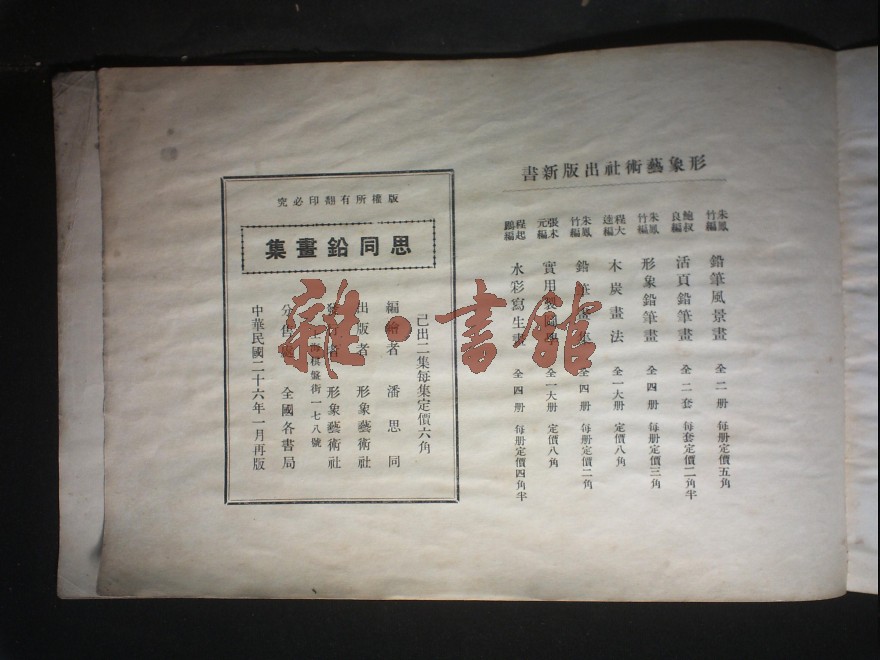 形象藝術社出版新書
朱鳳竹編 鉛筆風景畫 全二册 每册定價五角
鮑叔良編 活頁鉛筆畫 全二套 每套定價二角半
朱鳳竹編 形象鉛筆畫 全四册 每册定價三角
程大逵編 木炭畫法 全一大册 定價八角
朱鳳竹編 鉛筆畫集 全四册 每册定價二角
張末元編 實用製圖學 全一大册 定價八角
程起鵾編 水彩寫生 全四册 每册定價四角半
版權所有翻印必究
思同鉛畫集
已出二集每集定價六角
編繪者 潘思同
出版者 形象藝術社
發行者 形象藝術社
上海棋盤街一七八號
分售處 全國各書局
中華民國二十六年一月再版
雜·書館